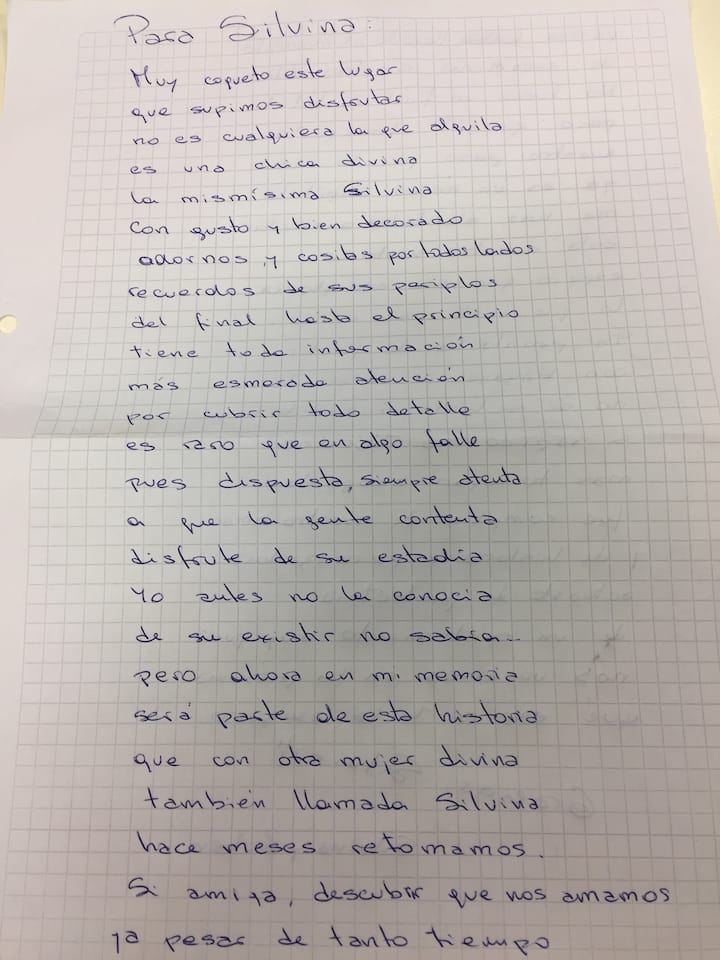 Para Silvina:
Muy coqueto este lugar
que supimos disfrutar
no es cualquiera la que alquila
es una chica divina
la mismísima Silvina
Con gusto y bien decorado
adornos y cositas por todos lados
recuerdos de sus periplos
del final hasta el principio
tiene toda información
más esmerada atención
por cubrir todo detalle
es raro que en algo falle
pues dispuesta, siempre atenta
a que la gente contenta
disfrute de su estadía
Yo antes no la conocía
de su existir no sabía...
pero ahora en mi memoria
será parte de esta historia
que con otra mujer divina
también llamada Silvina
hace meses retomamos.
Si amiga, descubrir que nos amamos
ya pesar de tanto tiempo